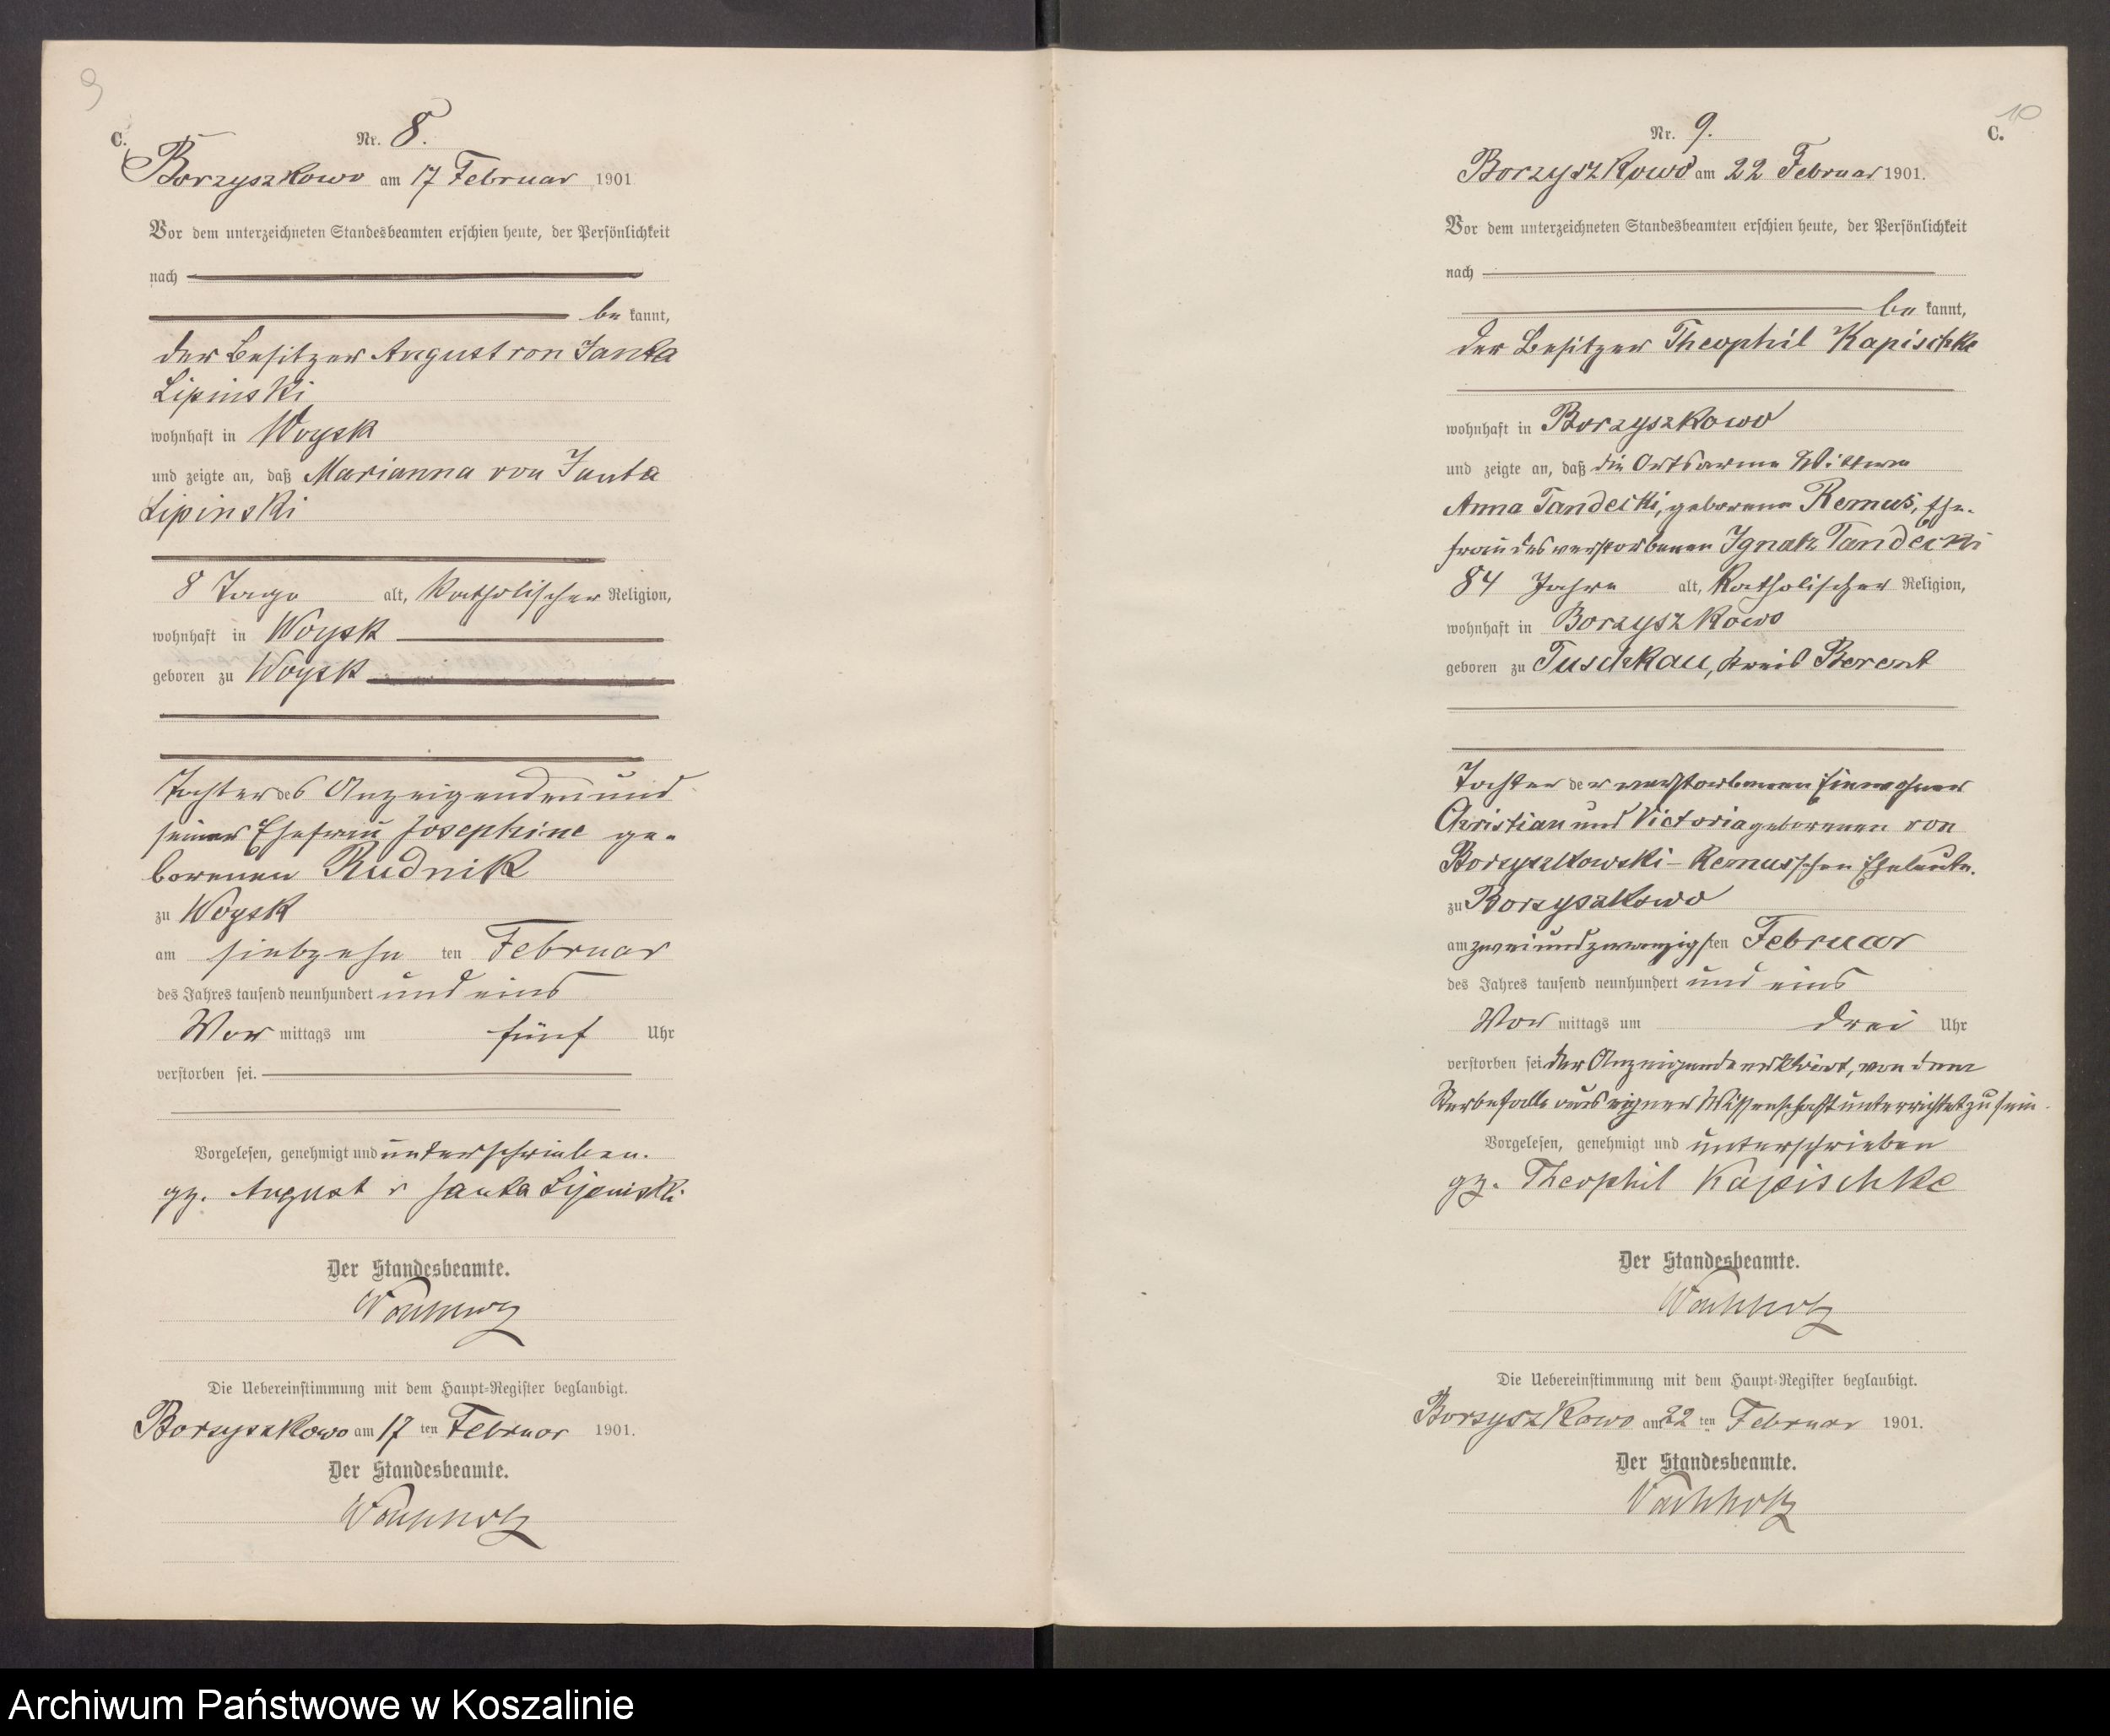 9
C.
Nr. 8.
Borzyszkowo am 17 Februar 1901
Vor dem unterzeichneten Standesbeamten erschien heute, der Persönlichkeit
nach
be kannt,
der Besitzer August von Janta
Lipinski
wohnhaft in Woysk
und zeigte an, daß Marianna von Janta
Lipinski
8 Tage alt, katholischer Religion,
wohnhaft in Woysk
geboren zu Woysk
Tochter des Anzeigenden und
seiner Ehefrau Josephine ge-
borenen Rudnik
zu Woysk
am siebzehn ten Februar
des Jahres tausend neunhundert und eins
Vor mittags um fünf Uhr
verstorben sei.
Vorgelesen, genehmigt und unterschrieben.
gz. August v Janta Lipinski
Der Standesbeamte.
Wachholz
Die Uebereinstimmung mit dem Haupt-Register beglaubigt.
Borzyszkowo am 17 ten Februar 1901.
Der Standesbeamte.
Wachholz
10
C.
Nr. 9.
Borzyszkowo am 22 Februar 1901.
Vor dem unterzeichneten Standesbeamten erschien heute, der Persönlichkeit
nach
be kannt,
der Besitzer Theophil Kapischke
wohnhaft in Borzyszkowo
und zeigte an, daß die Ortsarme Wittwe
Anna Tandecki, geborene Remus, Ehe-
frau des verstorbenen Ignatz Tandecki
84 Jahre alt, katholischer Religion,
wohnhaft in Borzyszkowo
geboren zu Tuschkau, Kreis Berent
Tochter der verstorbenen Einwohner
Christian und Victoria geborenen von
Borzyszkowski-Remus'schen Eheleute.
zu Borzyszkowo
am zweiundzwanzigsten Februar
des Jahres tausend neunhundert und eins
Vor mittags um drei Uhr
verstorben sei. Der Anzeigende erklärt, von dem
Sterbefalle aus eigner Wissenschaft unterrichtet zu sein.
Vorgelesen, genehmigt und unterschrieben
gz. Theophil Kapischke
Der Standesbeamte.
Wachholz
Die Uebereinstimmung mit dem Haupt-Register beglaubigt.
Borzyszkowo am 22 ten Februar 1901.
Der Standesbeamte.
Wachholz
Archiwum Państwowe w Koszalinie